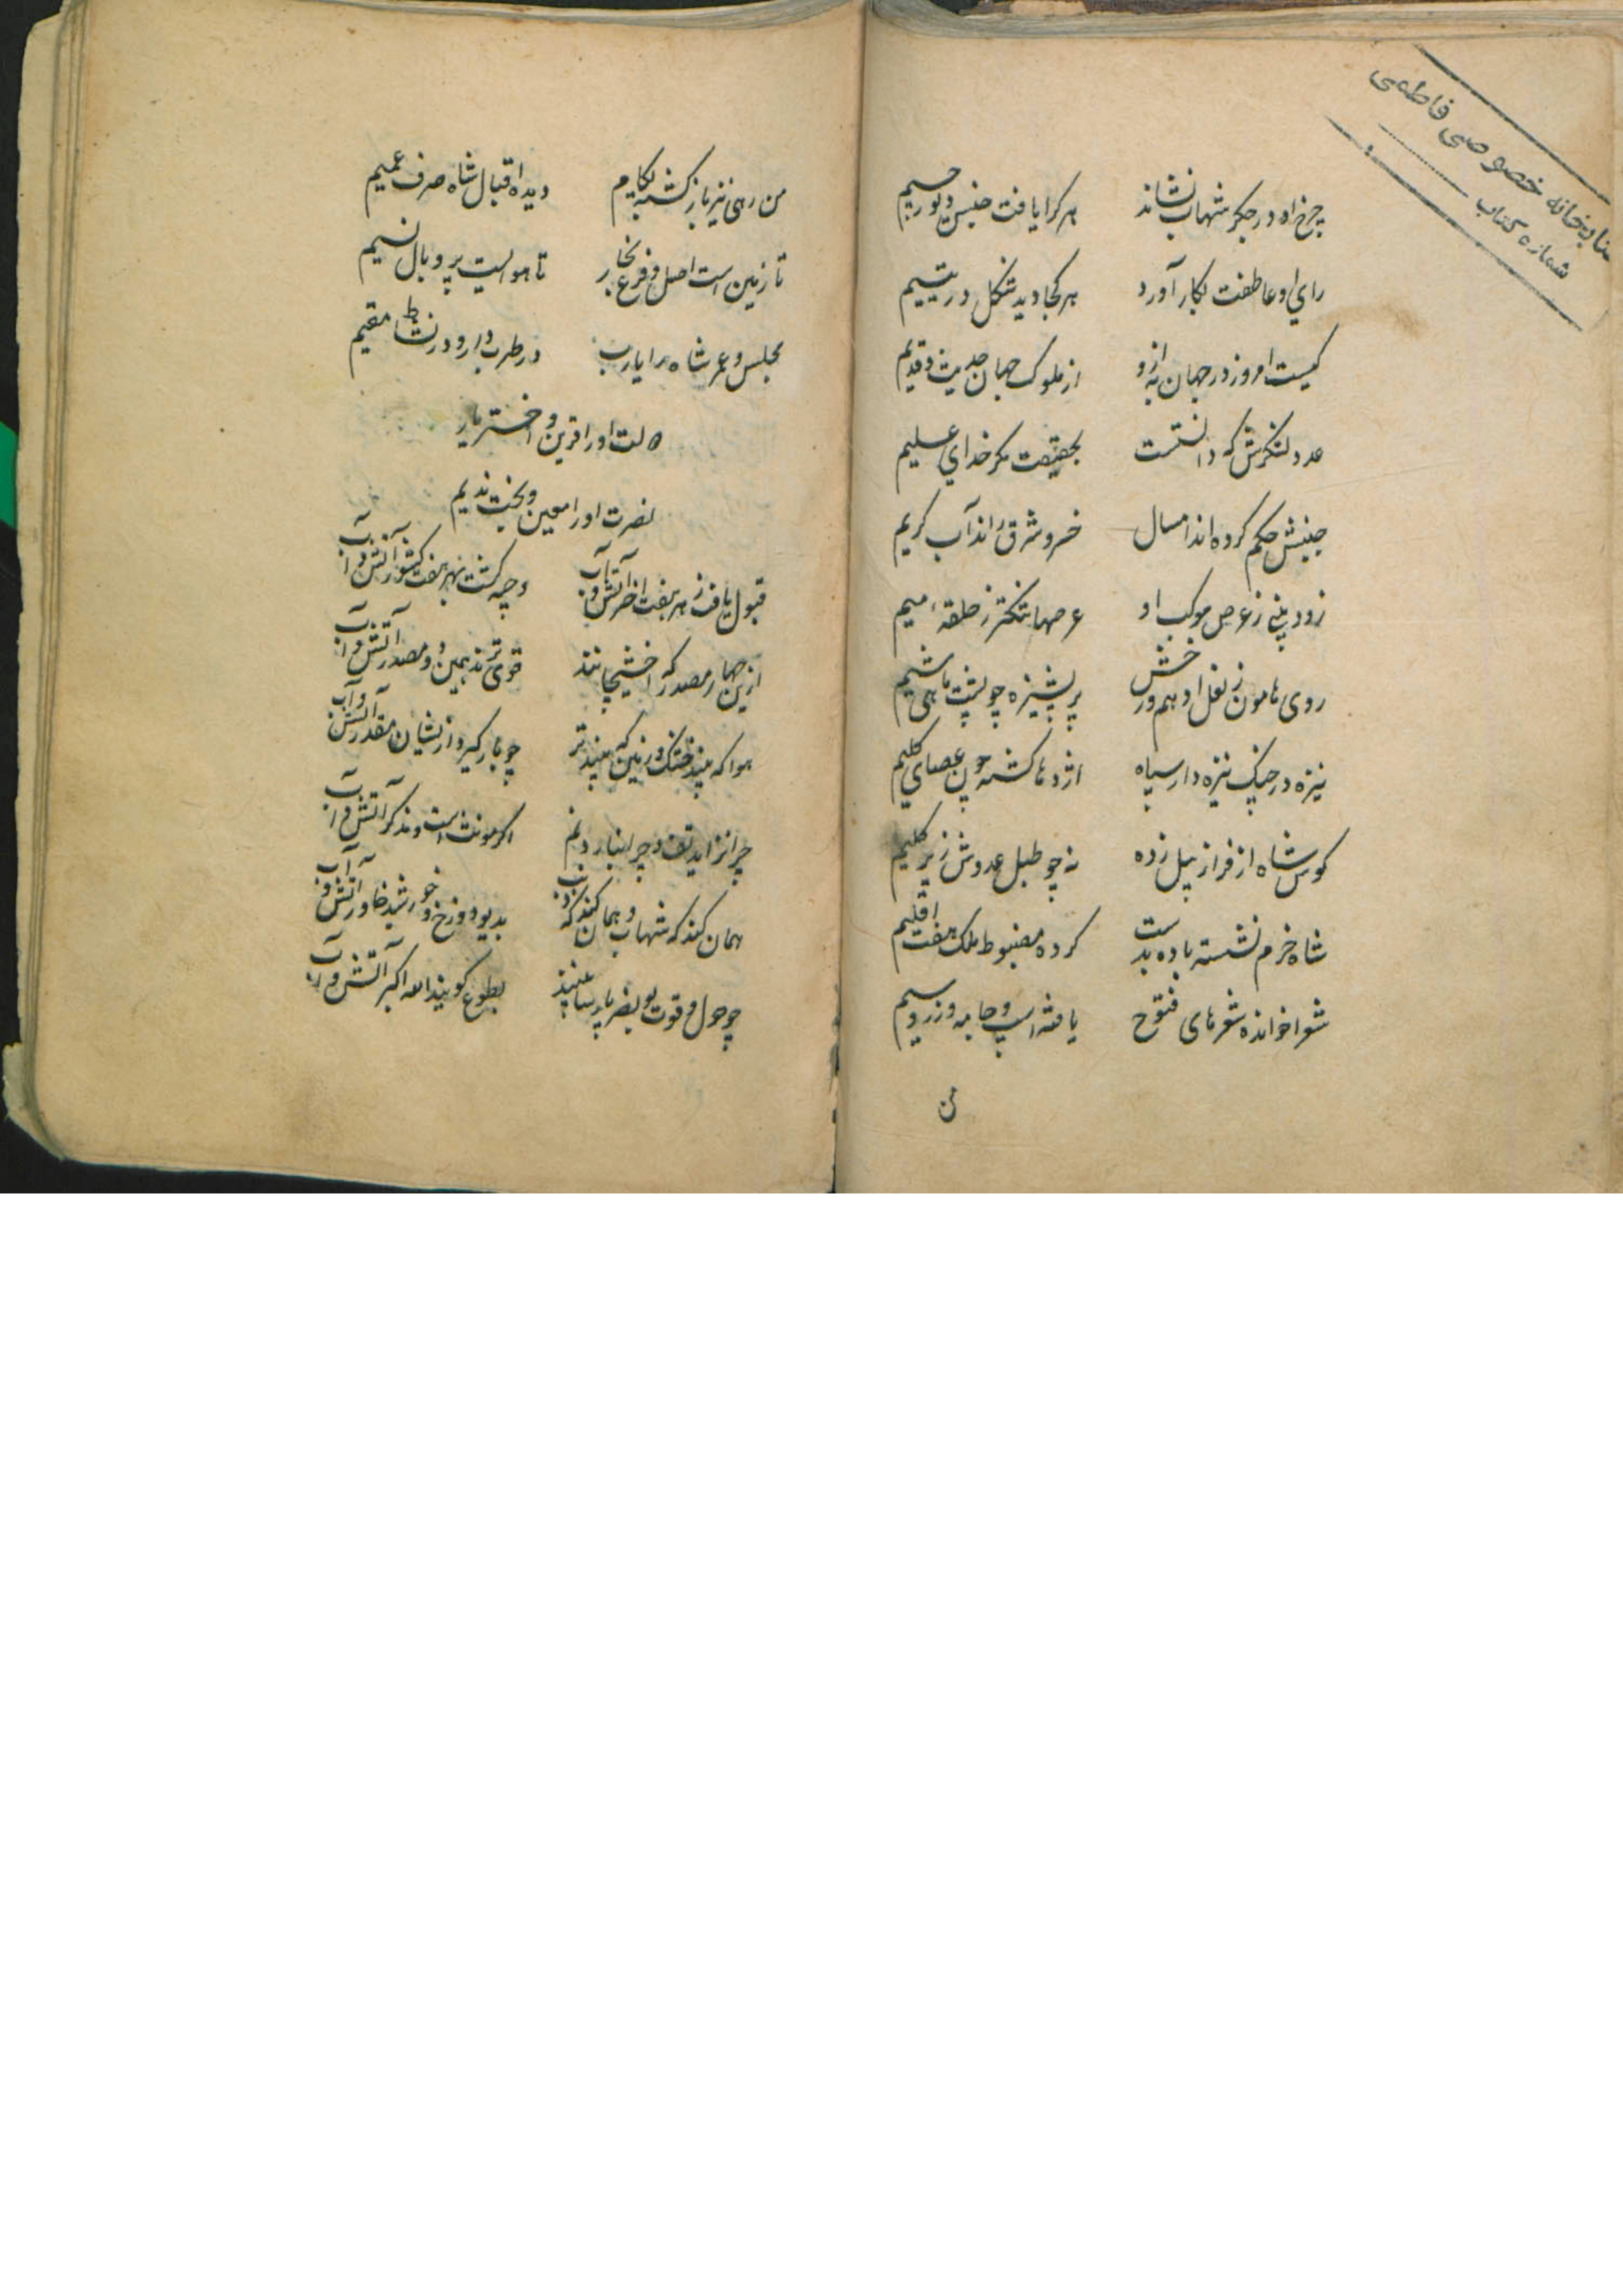 کتابخانه خصوصی فاطمی
شماره کتاب
چرخ او در جگر شهاب نشاند هر کرا یافت جنس دیو رجیم
رای او عاطفت بکار آورد هر کجا دید شکل در یتیم
کیست امروز در جهان به ازو از ملوک جهان حدیث و قدیم
عدد لشکرش که دانستست بحقیقت مکر خدای علیم
جنبش حکم کرده اند امسال خسرو شرق اند آب کریم
زود بینی ز عرض موکب او عرصها تنکتر ز حلقهٔ میم
روی هامون ز نعل او هم ورخش پر پشیزه چو پشت ماهی شیم
نیزه در چنک نیزه دار سپاه اژدها کشته چون عصای کلیم
کوس شاه از فراز پیل زده نه چو طبل عدوش زیر کلیم
شاه خرم نشسته باده بدست کرده مضبوط ملک هفت اقلیم
شعرا خوانده شعرهای فتوح یافته اسپ و جامه و زر و سیم
من
من رهی نیز باز کشته بکام دیده اقبال شاه صرف عمیم
تا زمین است اصل و فرع بخار تا هوا ایست پر و بال نسیم
مجلس و عمر شاه را یارب در طرب دار و در نشاط مقیم
دولت او را قرین و اختر یار
نصرت او را معین و بخت ندیم
قبول یافت ز هر هفت اختر آتش و آب وجیه کشت بهر هفت کشور آتش و آب
ازین چهار مصدر که اخشیجانند قوی ترند بهین دو مصدر آتش و آب
هوا که بیند خشک و زمین که بیند تر چو بار کیرد ازیشان مقدر آتش و آب
چرا نزاید تف و چرا نبارد نم اکر مونث است و مذکر آتش و آب
همان کند که شهاب و همان کند که ذنب بدیو دوزخ و خورشید خاور آتش و آب
چو حول و قوت بو نصر پارسا بینند بطوع کویند الله اکبر آتش و آب